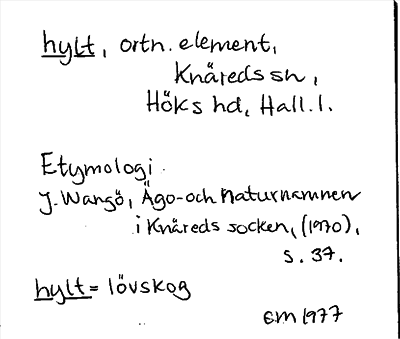 hylt, ortn. element,
Knäreds sn,
Höks hd, Hall. l.
Etymologi.
J. Wangö, Ägo- och Naturnamnen
i Knäreds socken, (1970),
s. 37.
hylt = lövskog
EM 1977